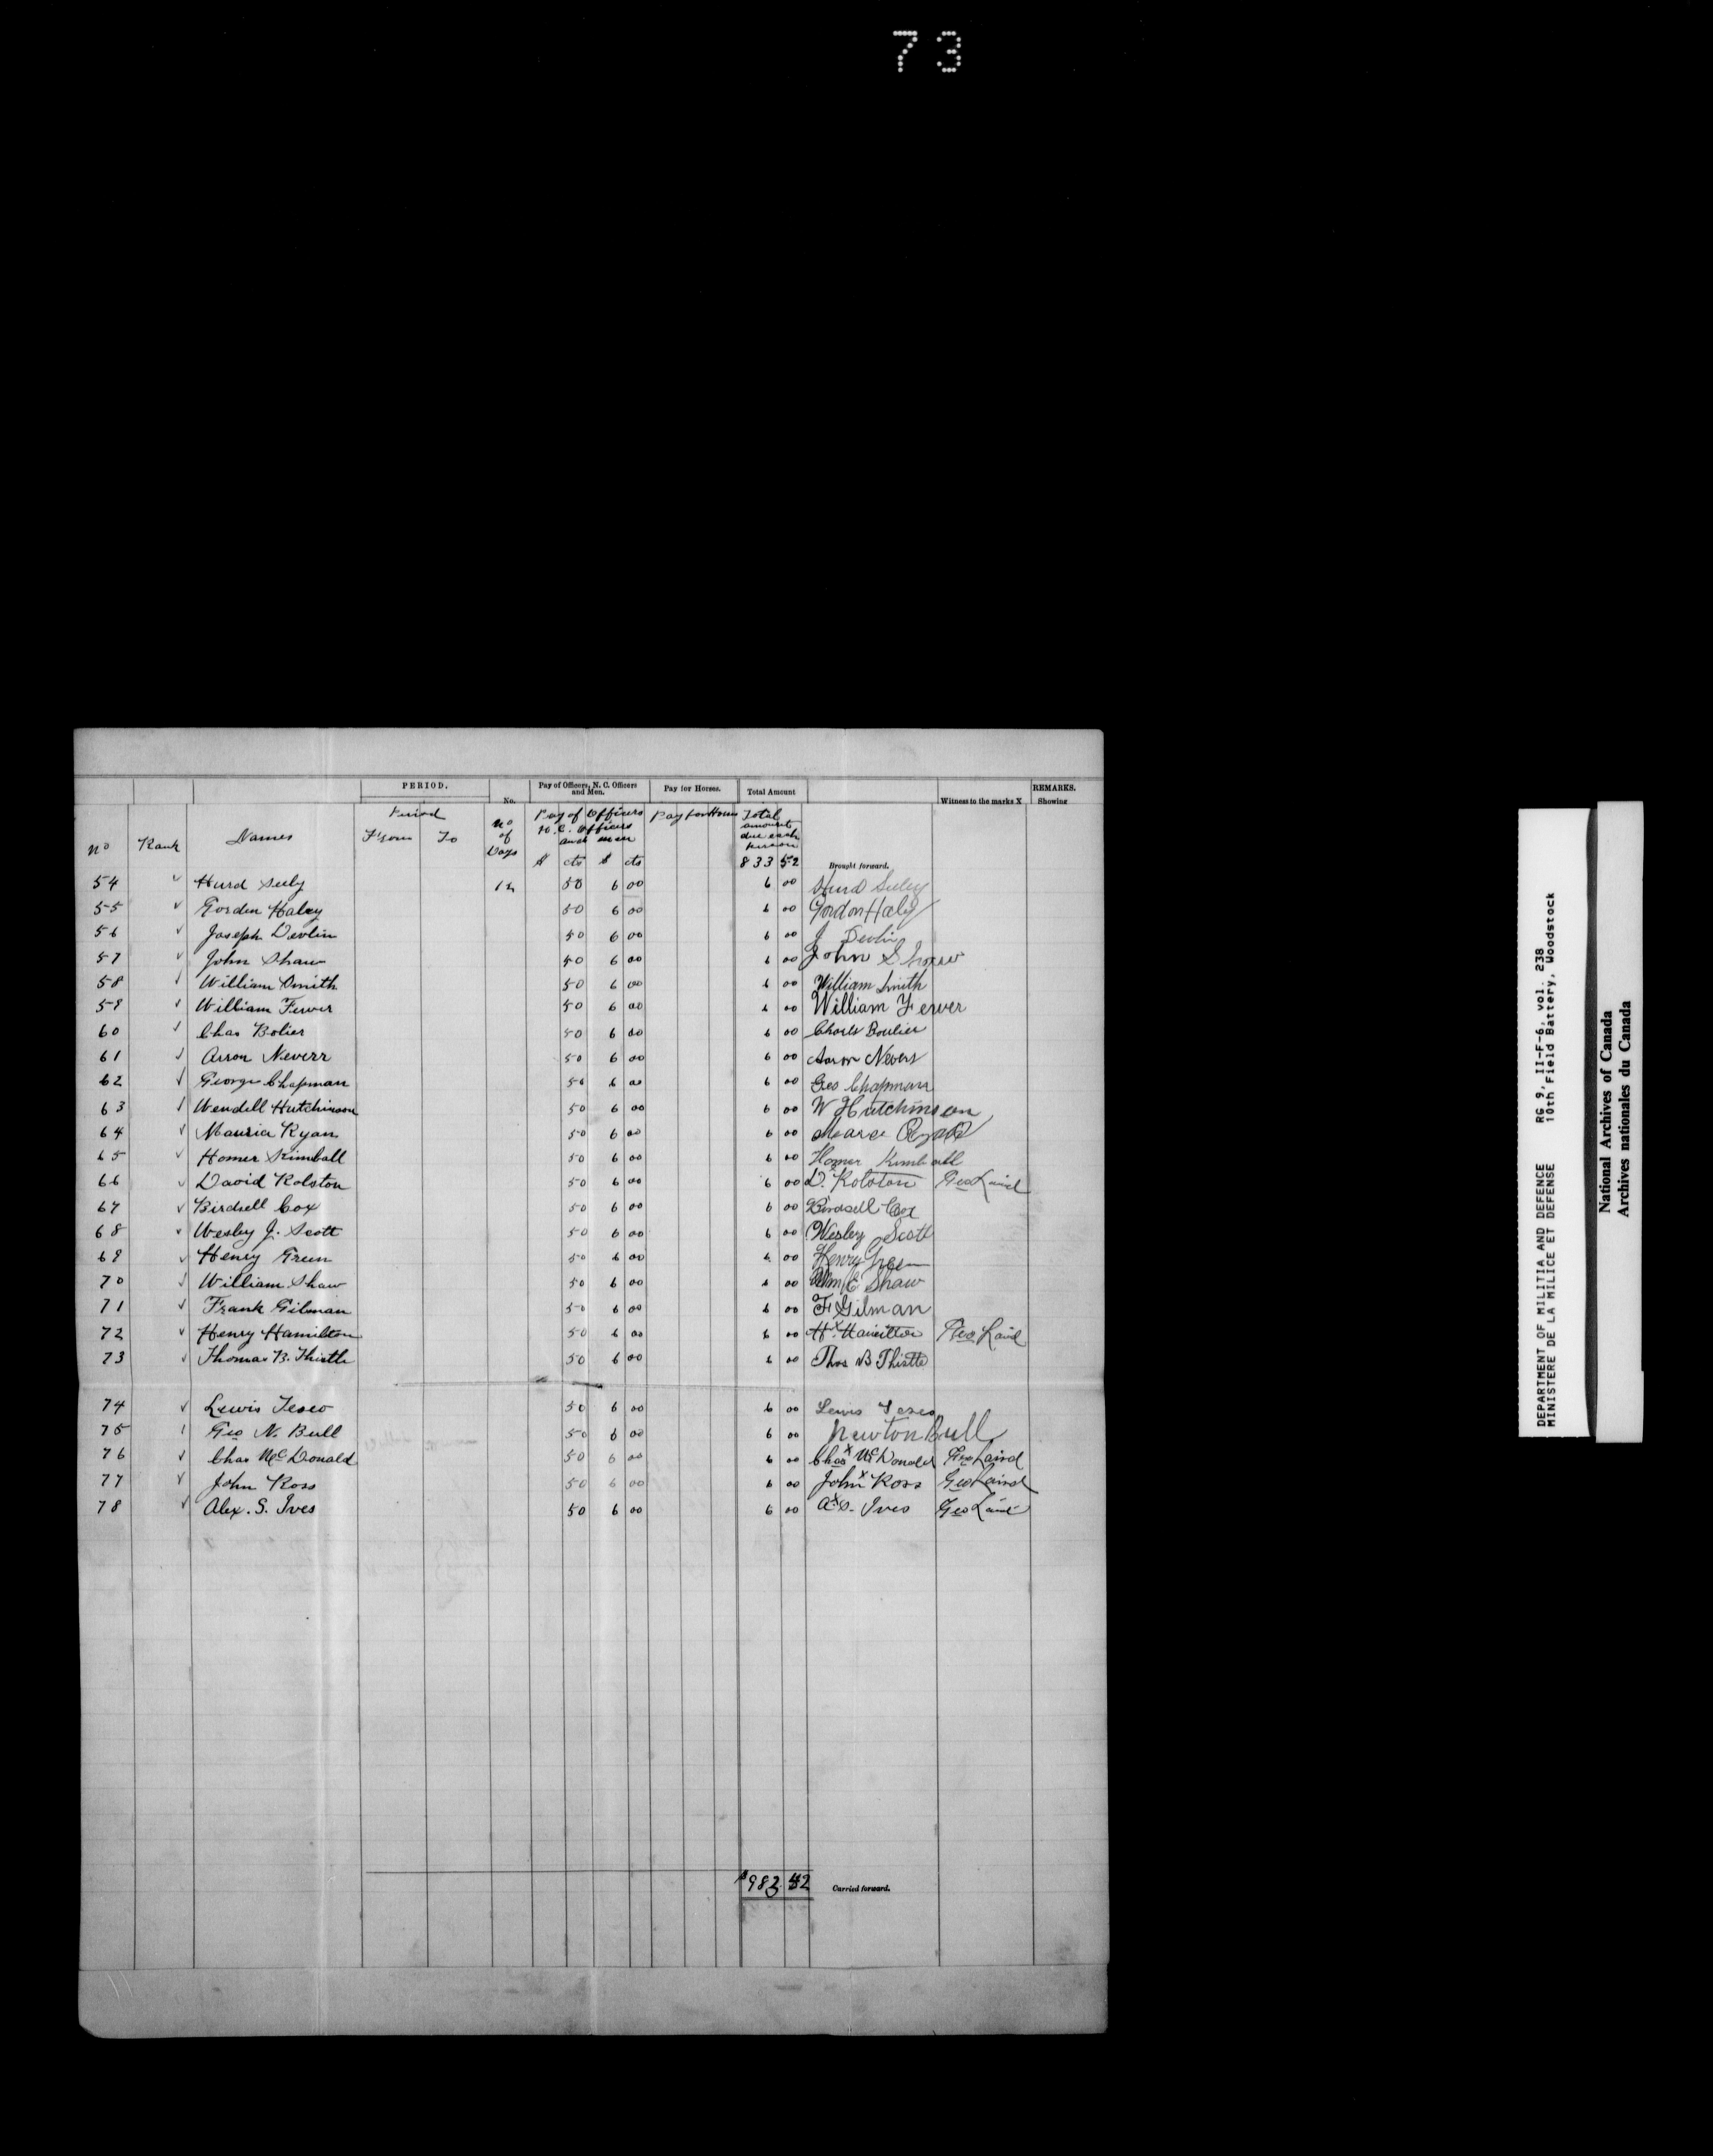 73
PERIOD. No. Pay of Officers, N. C. Officers and Men. Pay for Horses. Total Amount Witness to the marks X REMARKS. Showing
No Rank Names Period From To No of Days Pay of Officers N.C. Officers and men $ cts $ cts Pay for Horses Total amount due each person
833 52 Brought forward.
54 Hurd Seely 12 50 6 00 6 00 Hurd Seeley
55 Gorden Haley 50 6 00 6 00 Gordon Haley
56 Joseph Devlin 50 6 00 6 00 J Devlin
57 John Shaw 50 6 00 6 00 John Shaw
58 William Smith 50 6 00 6 00 William Smith
59 William Fewer 50 6 00 6 00 William Fewer
60 Chas Bolier 50 6 00 6 00 Charls Boulier
61 Arron Neverr 50 6 00 6 00 Aaron Nevers
62 George Chapman 50 6 00 6 00 Geo Chapman
63 Wendell Hutchinson 50 6 00 6 00 W Hutchinson
64 Ryan 50 6 00 6 00 Ryan
65 Homer Kimball 50 6 00 6 00 Homer Kimball
66 David Rolston 50 6 00 6 00 D. X Rolston Geo Laird
67 Birdsell Cox 50 6 00 6 00 Birdsell Cox
68 Wesley J. Scott 50 6 00 6 00 Wesley Scott
69 Henry Green 50 6 00 6 00 Henry Green
70 William Shaw 50 6 00 6 00 Wm C Shaw
71 Frank Gilman 50 6 00 6 00 F Gilman
72 Henry Hamilton 50 6 00 6 00 H. X Hamilton Geo Laird
73 Thomas B. Thistle 50 6 00 6 00 Thos B Thistle
74 Lewis Teseo 50 6 00 6 00 Lewis Teseo
75 Geo N. Bull 50 6 00 6 00 Newton Bull
76 Chas McDonald 50 6 00 6 00 Chas X McDonald Geo Laird
77 John Ross 50 6 00 6 00 John X Ross Geo Laird
78 Alex. S. Ives 50 6 00 6 00 A X S. Ives Geo Laird
$983 52 Carried forward.
DEPARTMENT OF MILITIA AND DEFENCE RG 9, II-F-6, vol. 238
MINISTERE DE LA MILICE ET DEFENSE 10th Field Battery, Woodstock
National Archives of Canada
Archives nationales du Canada